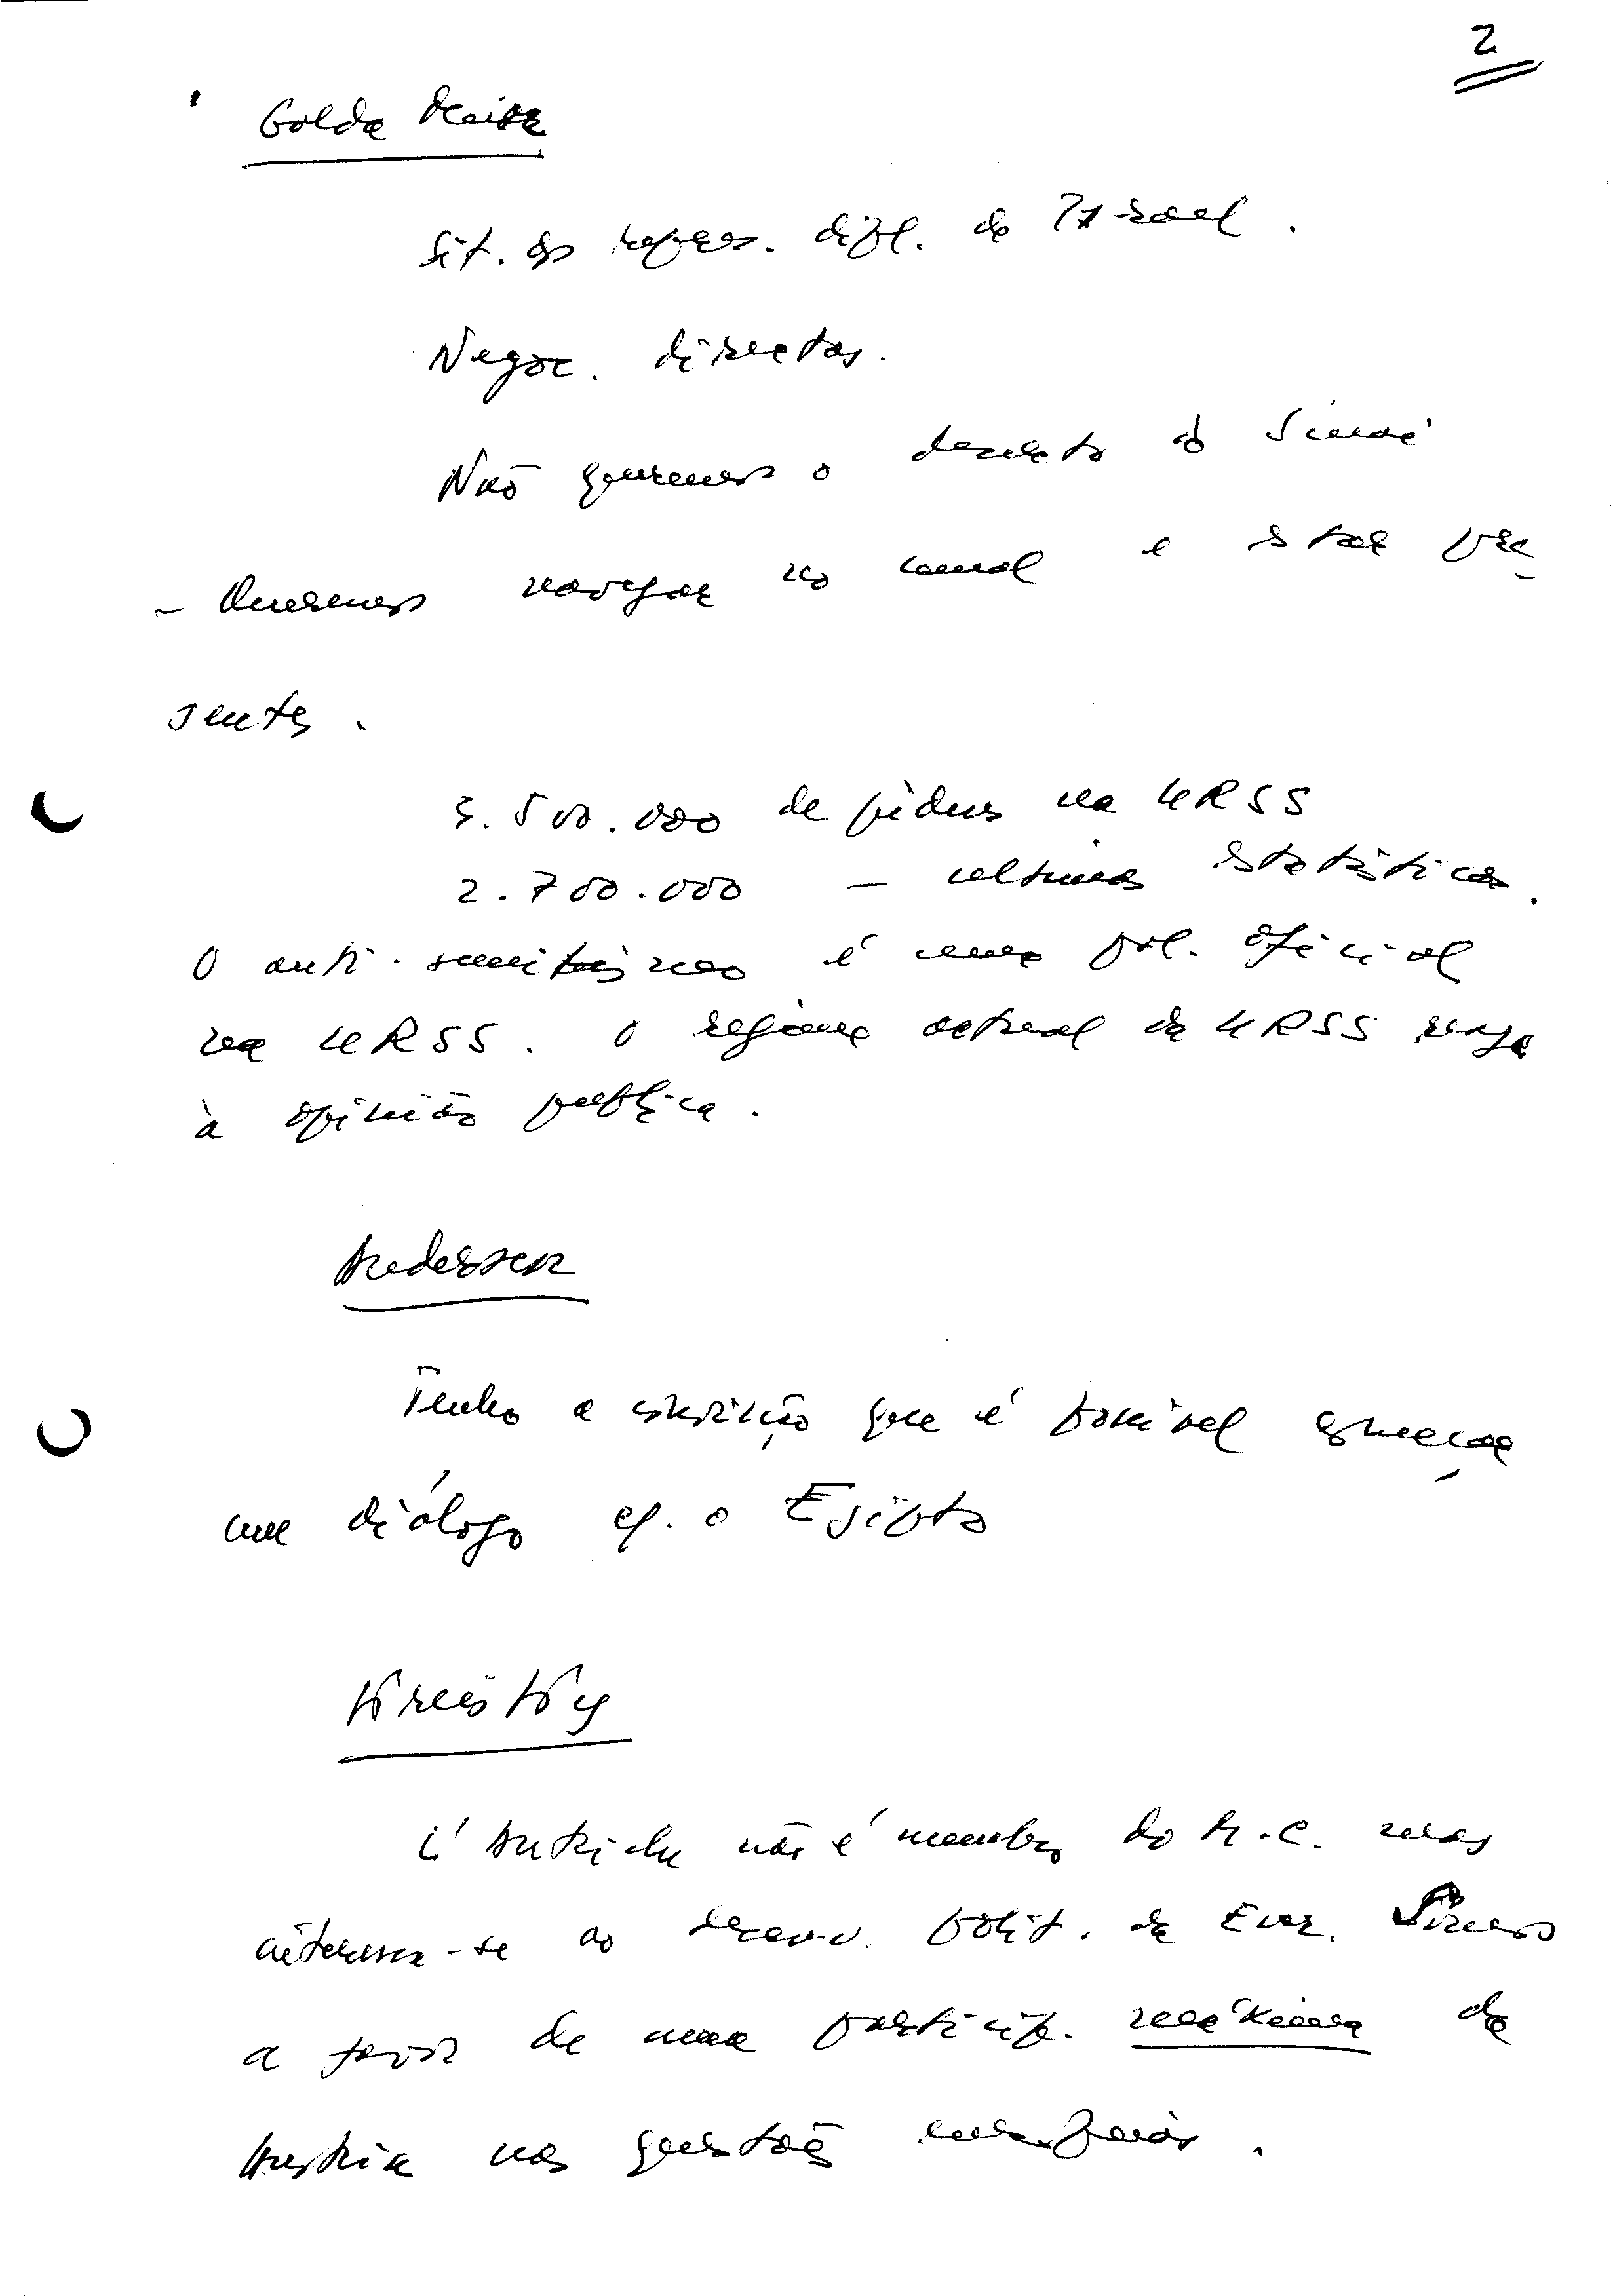 2
Golda Meir
Sit. dos repres. dipl. de Israel.
Negoc. directas.
Não queremos o deserto do Sinai
- Queremos navegar no canal e estar pre-
sentes.
3.500.000 de judeus na URSS
2.700.000 - ultimas estatísticas.
O anti-semitismo é uma pol. oficial
na URSS. O regime actual da URSS reage
à opinião publica.
Anderssen
Tenho a convicção que é possivel começar
um diálogo c/. o Egipto
Kreisky
L'Autriche não é membro do M.C. mas
interessa-se ao desenv. polit. da Eur. Somos
a favor de uma particip. máxima da
Austria nas questões